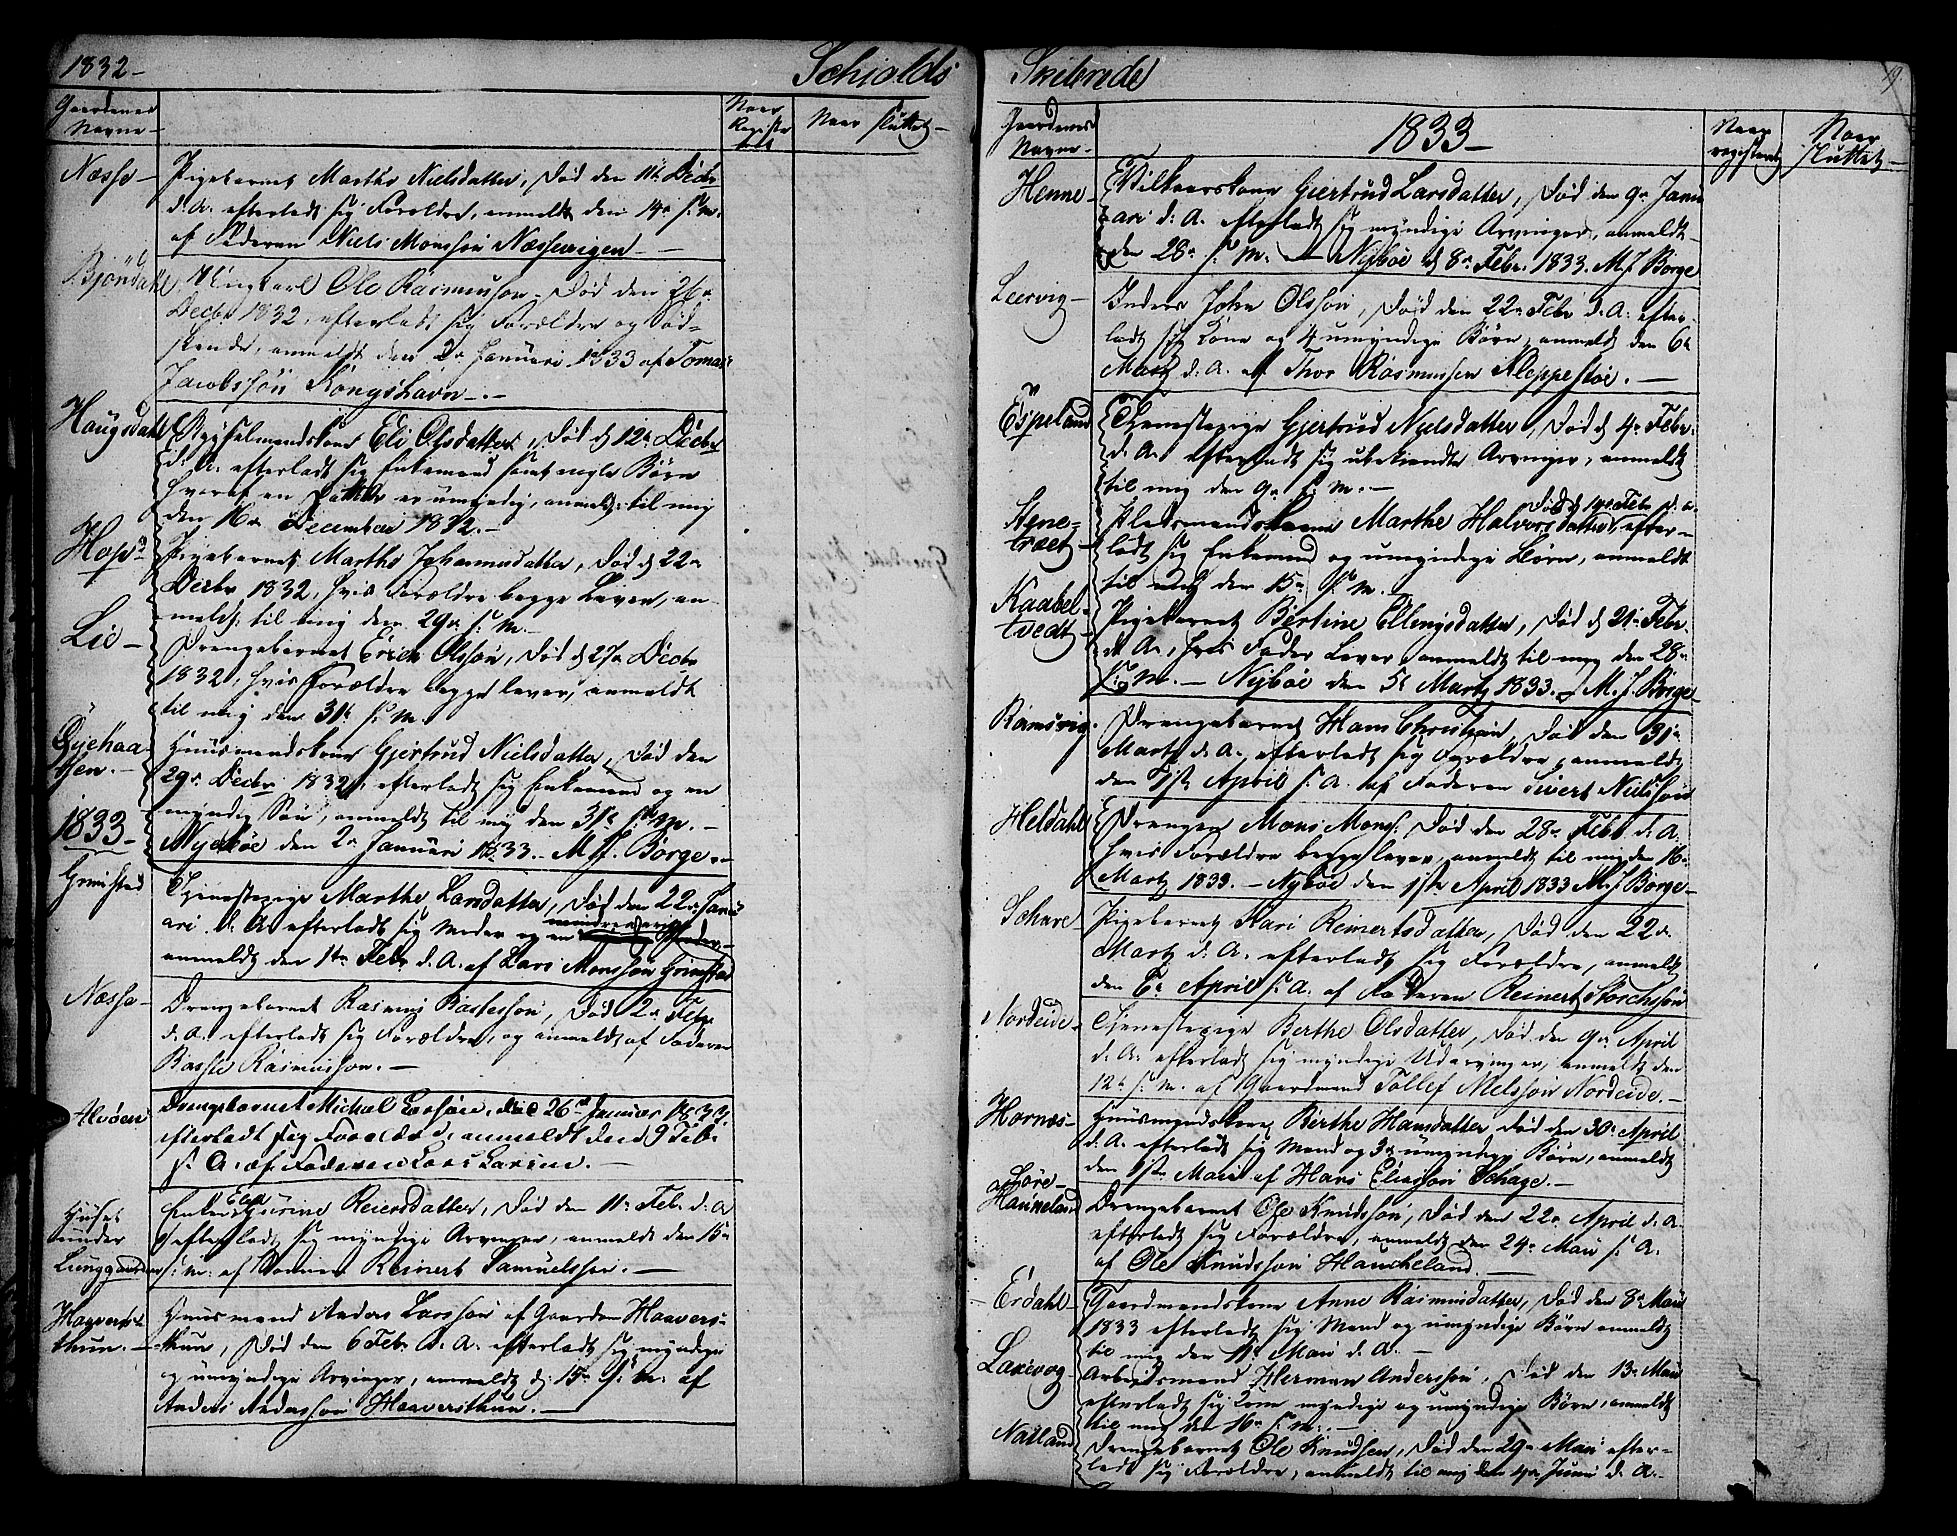 1832 -
Schiolds
Gaardenes
Navne -
Naar
Registe
Naar sluttet -
Næsse - Pigebarnet Marthe Nielsdatter, Død den 11te Decbr
d. A. efterladt sig Forældre, anmeldt den 14de s. m.
af Faderen Niels Monssøn Næssevigen -
Bjöndahl Ungkarl Ole Rasmusson, Død den 26de
Decbr 1832, efterladt sig Forældre og Sød-
skende, anmeldt den 2de Januari 1833 af Tomas
Jacobssøn Kongshavn -
Haugsdahl Eli Olsdatter, Død d 12te Decbr
d. A. efterladt sig Enkemand samt nogle Børn
hvoraf en Datter er umyndig, anmeldt til mig
den 16de December 1832. -
Hop - Pigebarnet Marthe Johannesdatter, Død d 22de
Decbr 1832, hvis Forældre begge Lever, an-
meldt til mig den 29de s. m. -
Lie - Drengebarnet Erich Olssøn, Død d 27de Decbr
1832, hvis Forældre begge lever, anmeldt
til mig den 31te s. M.
Dyehaa-
gen. - Huusmandskone Gjertrud Nielsdatter, Død den
29de Decbr 1832, efterladt sig Enkemand og en
myndig Søn, anmeldt til mig den 31te s. m. -
1833 - Nybøe den 2de Januari 1833. M. J. Børge. -
Grimstad Tjenestepige Marthe Larsdatter, Død den 22de Janu-
ari d. A. efterladt sig Moder og en mindreaarig
anmeldt den 1te Febr d. A. af Lars Monssøn Grimstad
Næsse - Drengebarnet Rasmus Bastessøn, Død 2de Febr
d. A. efterladt sig Forældre, og anmeldt af Faderen
Basste Rasmusson. -
Alvøen Drengebarnet Michael Larssøn, død 26de Januar 1833,
efterladt sig Forældre, anmeldt den 9 Feb.
s. A. af Faderen Lars Larsen. -
Huset
under
Lunggaarden Enken Elen Reiersdatter, Død den 11te Feb. d. A
efterladt sig myndige Arvinger, anmeldt den 15de
s. m. af Reinert Samuelsson. -
Haavers-
thun. - Huusmand Anders Larssøn af Gaarden Haavers-
thun, Død den 6 Feb. d. A. efterladt sig myndige
og umyndige Arvinger, anmeldt d. 15de s. m. af
Anders Andersson Haaversthun. -
Skibrede
19
Gaardenes
Navne -
1833 -
Naar
registeret
Naar
sluttet -
Henne - Vilkaarskone Gjertrud Larsdatter, Død den 9de Janu-
ari d. A. efterladt sig myndige Arvinger, anmeldt
den 28de s. M. - Nybøe d 8de Febr. 1833. M. J. Børge
Leervig - Inders John Olsson, Død den 22de Febr d. A. efter-
ladt sig Kone og 4 umyndige Børn, anmeldt den 6te
Martz d. A. af Thor Rasmussen Kleppestøe. -
Espeland Tjenestepige Gjertrud Nielsdatter, Død d 4de Febr.
d. A. efterladt sig ubekiendte Arvinger, anmeldt
til mig den 9de s. m. -
Stene-
træet - Pladsmandskone Marthe Halvorsdatter, Død d 14de Febr d. A. efter-
ladt sig Enkemand og umyndige Børn, anmeldt
til mig den 15de s. m.
Kaabel-
tvedt - Pigebarnet Bertine Ellingsdatter, Død d 21de Febr.
d. A., hvis Fader Lever anmeldt til mig den 28de
s. m. - Nybøe den 5te Martz 1833. - M. J. Børge
Ramsvig. Drengebarnet Hans Christian, Død den 31te
Martz d. A. efterladt sig Forældre, anmeldt
den 1ste April s. A. af Faderen Sivert Nielsson
Heldahl Drengen Mons Mons: Død den 28de Febr d. A.
hvis Forældre begge lever, anmeldt til mig den 16de
Martz 1833. - Nybøe den 1ste April 1833 M. J. Børge -
Schare - Pigebarnet Kari Reinertsdatter, Død den 22de
Martz d. A. efterladt sig Forældre, anmeldt
den 6te April s. A. af Faderen Reinert Storchssøn
Nordeide - Tjenestepige Berthe Olsdatter, Død den 9de April
d. A. efterladt sig myndige Udarvinger, anmeldt den
12te s. m. af Gaardmand Tollef Melssøn Nordeide. -
Hornæs - Huusmandskone Berthe Hansdatter Død den 30te April
d. A. efterladt sig Mand og 3de umyndige Børn, anmeldt
den 1ste Mai af Hans Eliasson Schage. -
Støre-
Haukeland Drengebarnet Ole Knudssøn, Død den 22de April d. A.
efterladt sig Forældre, anmeldt den 24de Mai s. A.
af Ole Knudssøn Haucheland. -
Erdahl - Gaardmandskone Anne Rasmusdatter, Død den 8de Mai
1833 efterladt sig Mand og umyndige Børn anmeldt
til mig den 11te Mai d. A. -
Laxevog - Arbeidsmand Herman Anderssøn, Død den 13de Mai
efterladt sig Kone myndige og umyndige Børn, anmeldt
til mig den 16de s. m. -
Natland Drengebarnet Ole Knudsen, Død den 29de Mai efter-
ladt sig Forældre, anmeldt til mig den 4de Juni d. A. -